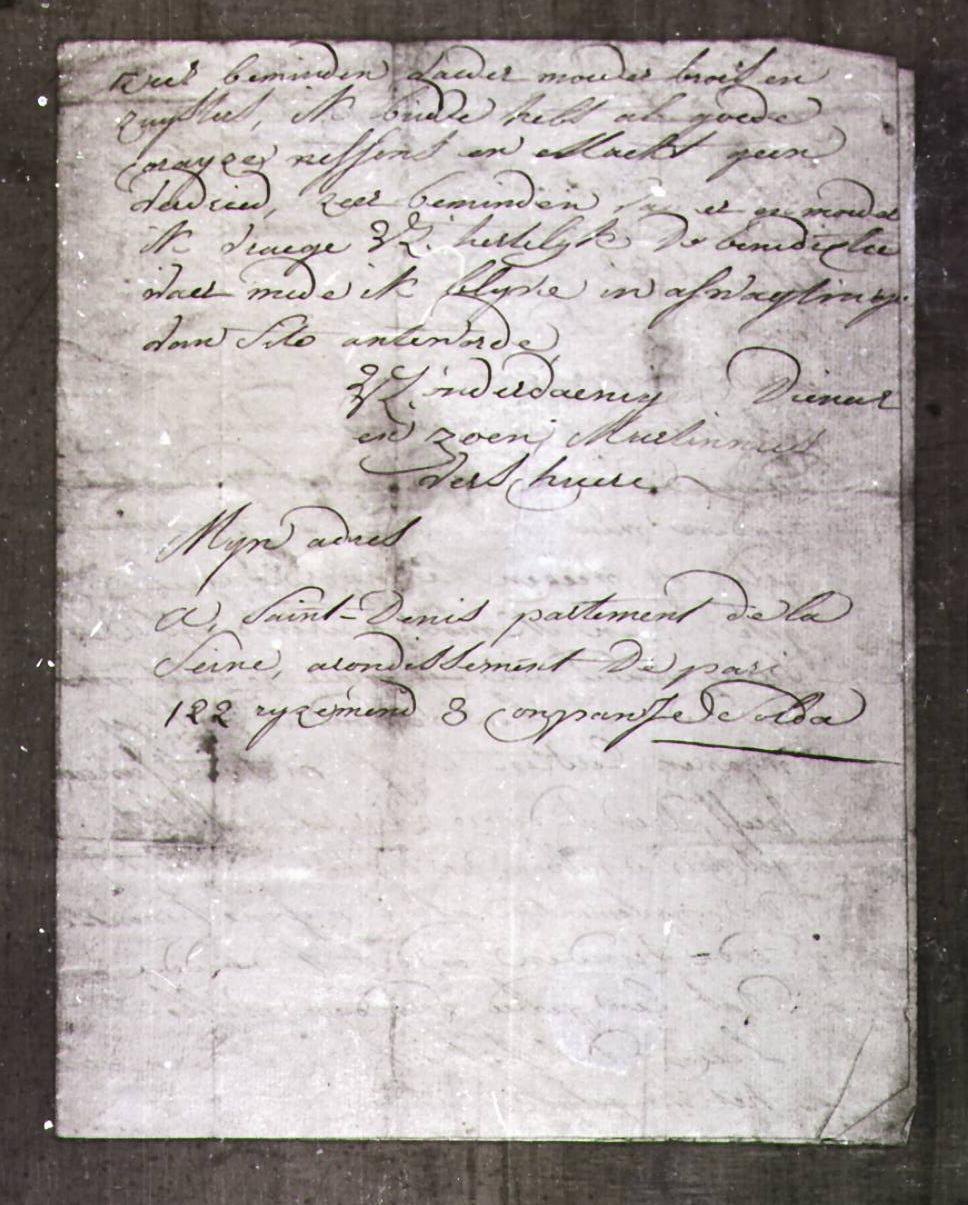 zeer beminden vaeder moeder broers en
zusters, ik bidde hebt al goede
en mackt geen
verdriet, zeer beminden vaeder en moeder
ik vraege UL. hertelyk de benedixtie
waer mede ik blyve in afwagting
van Sito antworde
UL. onderdaenig Dienaer
en zoen,
Mijn adres
a, Saint-Denis partement de la
Seine, arondissement De pari
122 ryzement 3 companje Solda